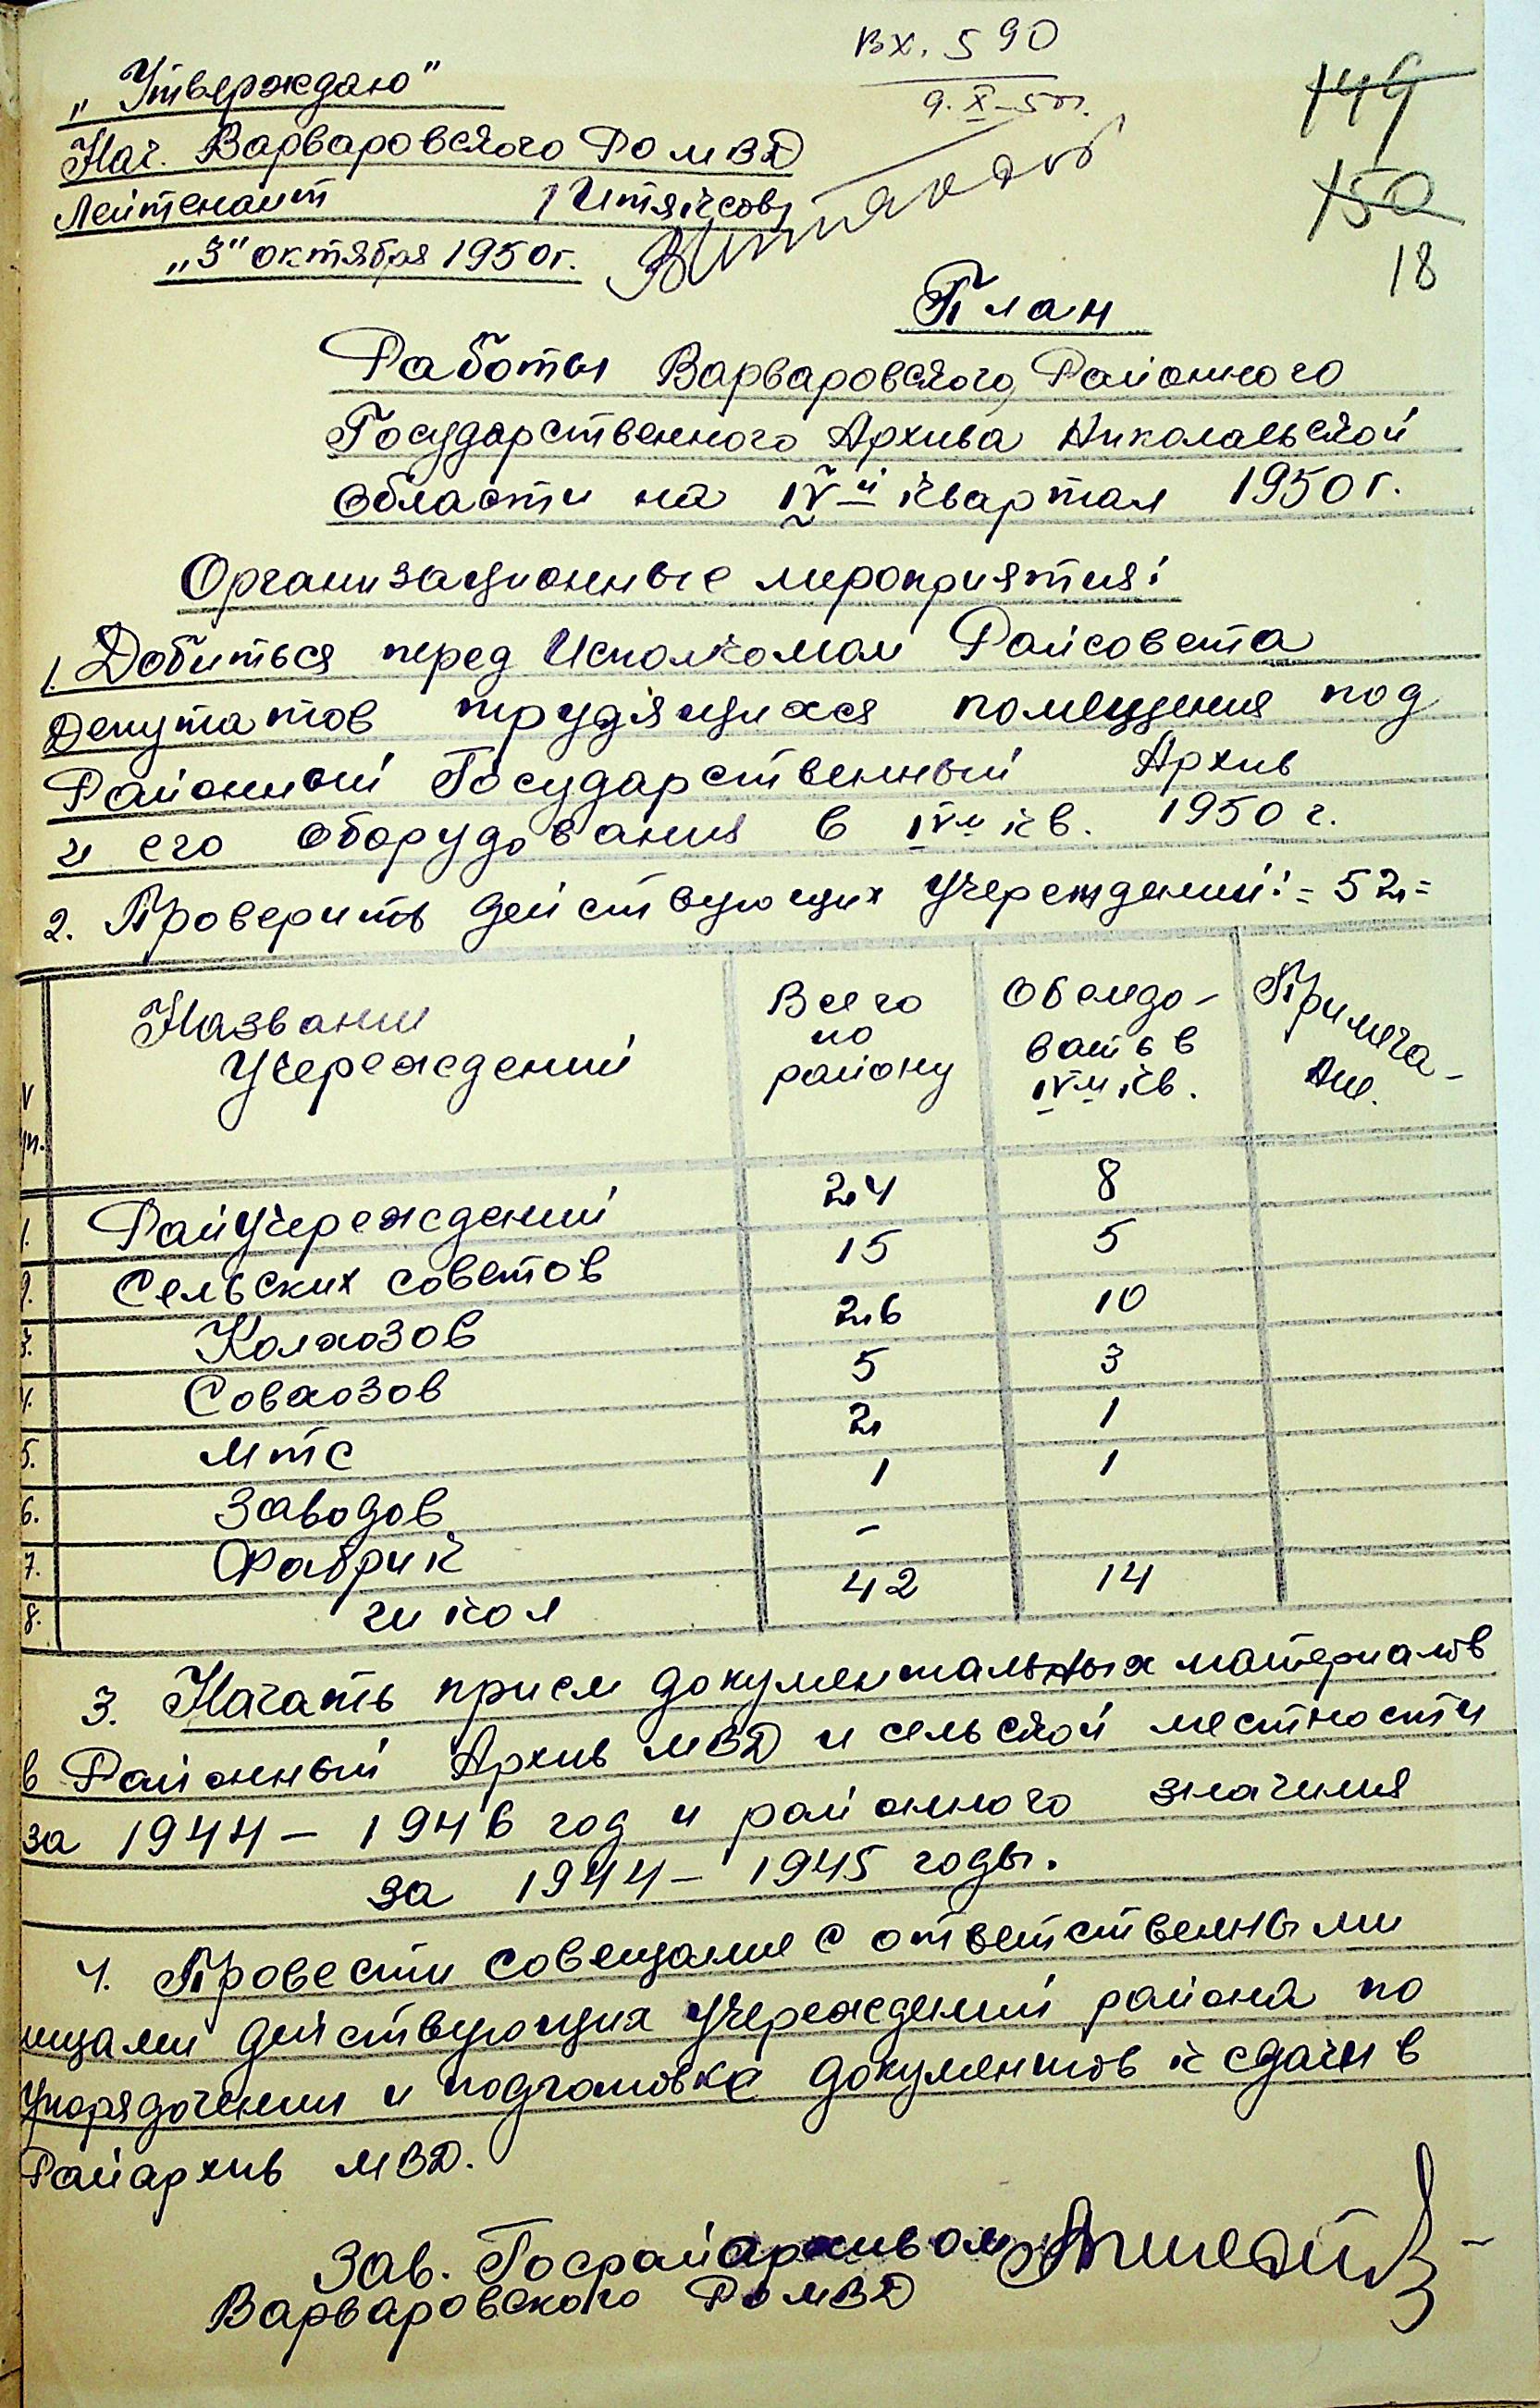 Вх. 590
9.X-50г.
149
150
18
„Утверждаю"
Нач. Варваровского РО МВД
Лейтенант /Итяксов/
„3" октября 1950г.
План
Работы Варваровского Районного
Государственного Архива Николаевской
области на IV-й квартал 1950г.
Организационные мероприятия:
1. Добиться перед Исполкомом Райсовета
Депутатов трудящихся помещения под
Районный Государственный Архив
и его оборудования в IVм кв. 1950 г.
2. Проверить действующих учереждений: = 52 =
Названии Учереждений
Всего по району
Обследовать в IVм кв.
Примечание.
1. Райучереждений 24 8
2. Сельских советов 15 5
3. Колхозов 26 10
4. Совхозов 5 3
5. МТС 2 1
6. Заводов 1 1
7. Фабрик –
8. школ 42 14
3. Начать прием документальных материалов
в Районный Архив МВД и сельской местности
за 1944 – 1946 год и районного значения
за 1944 – 1945 годы.
4. Провести совещание с ответственными
лицами действующих учереждений района по
упорядочении и подготовке документов к сдачи в
Райархив МВД.
Зав. Госрайархивом
Варваровского РО МВД